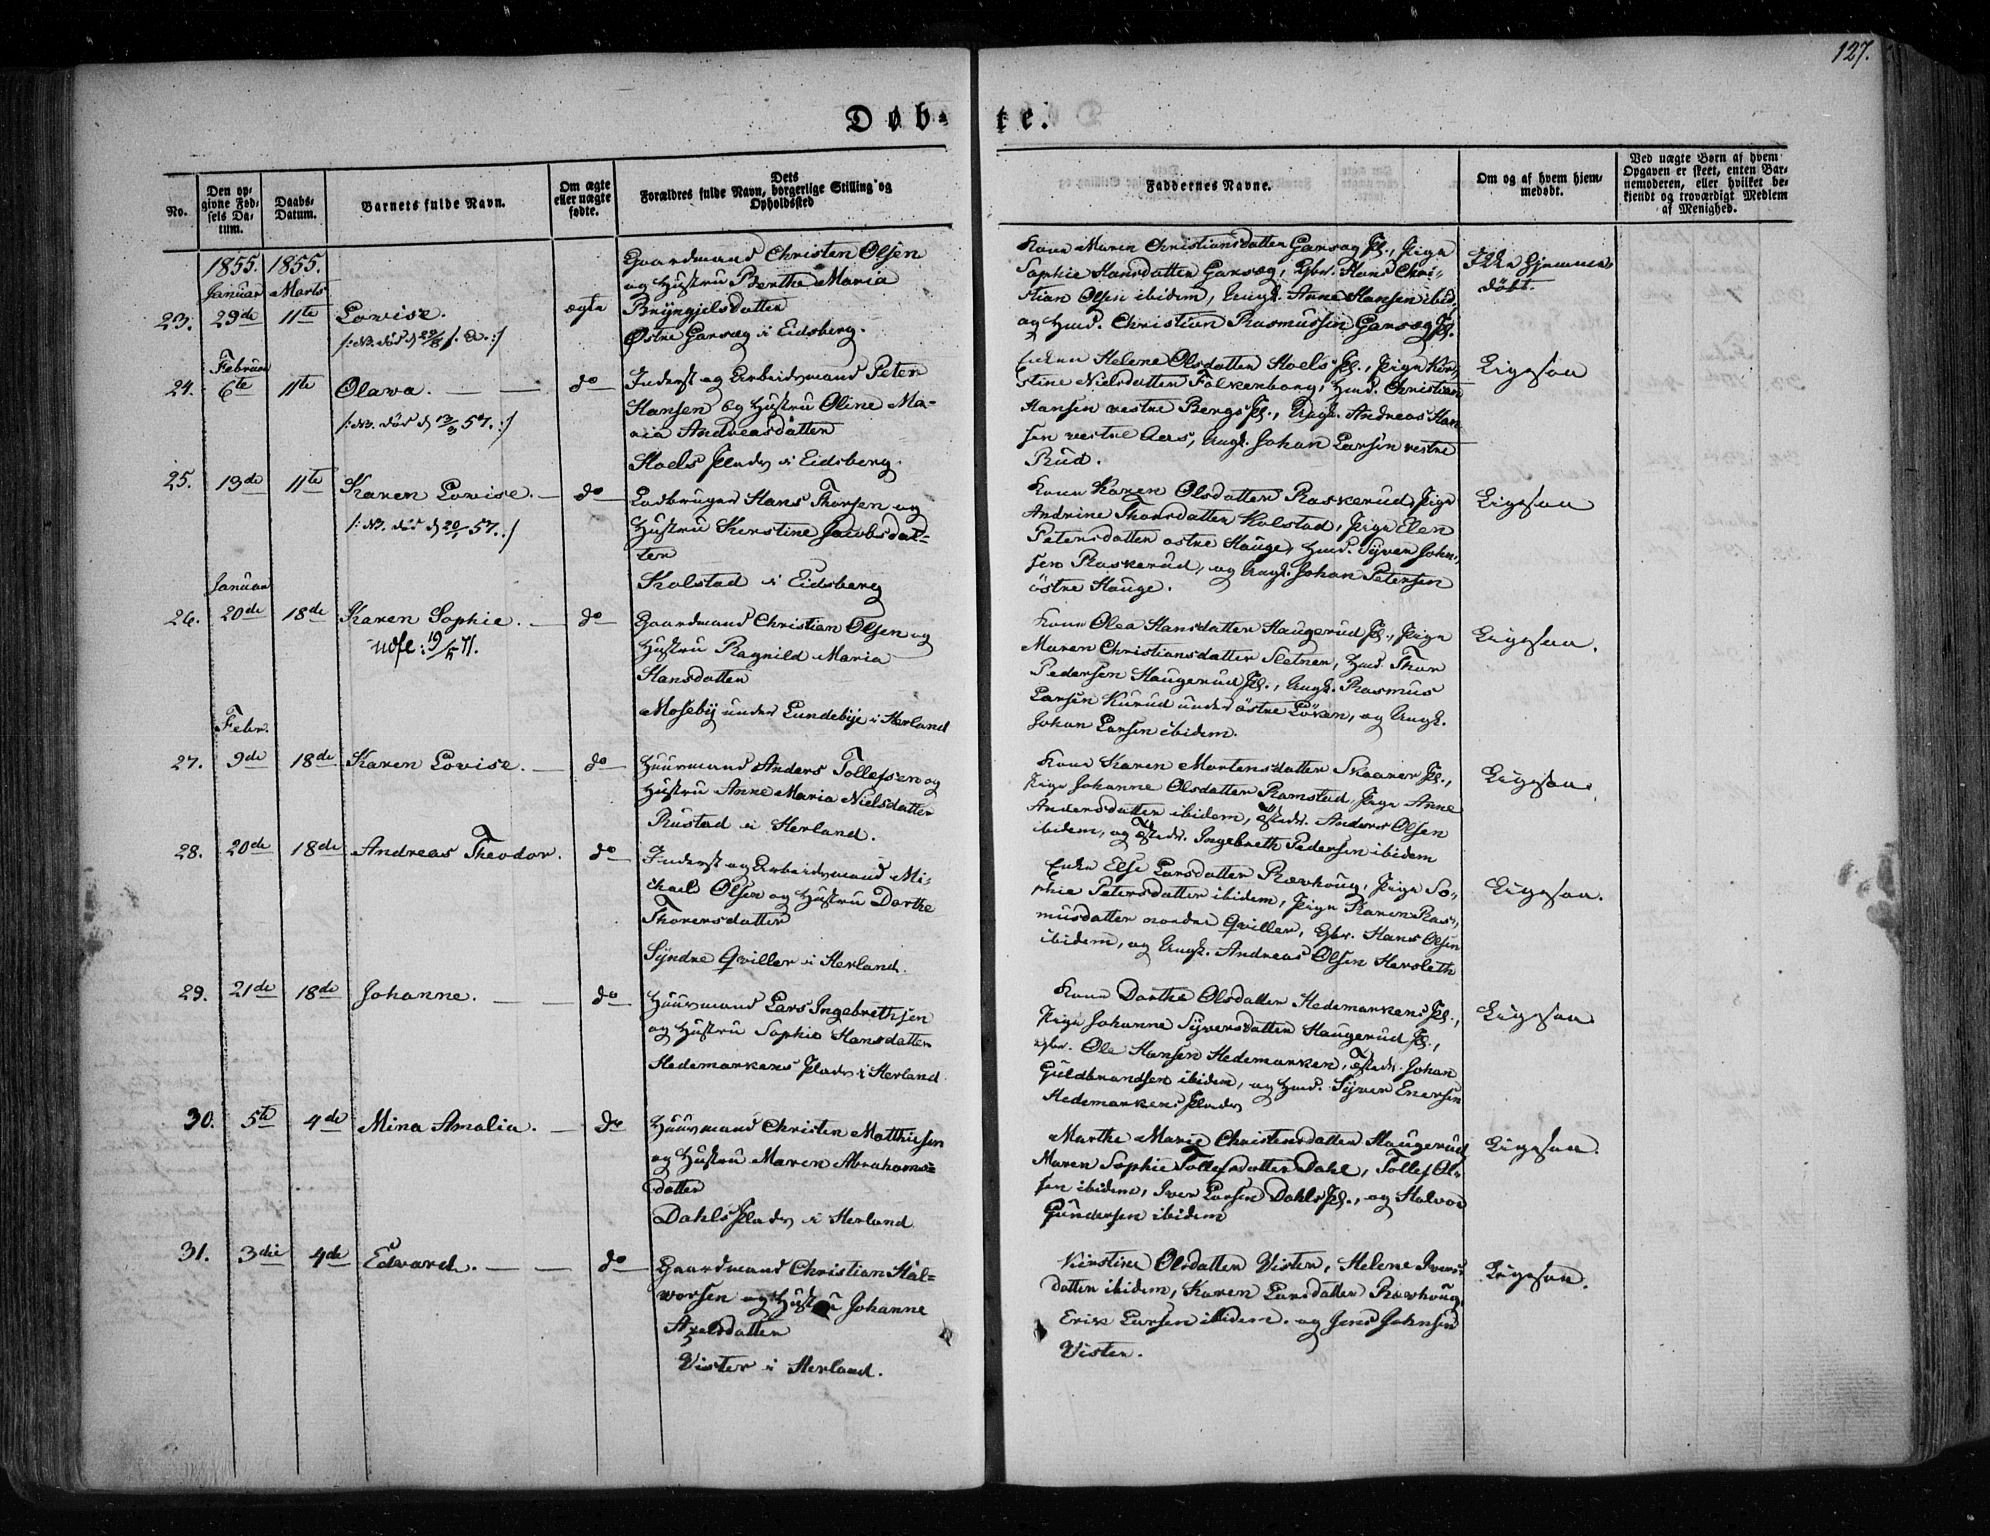 127.
Døb- te.
No.
Den opgivne Fødsels Datum.
Daabs-Datum.
Barnets fulde Navn.
Om ægte eller uægte fødte.
Forældres fulde Navn, Dets borgerlige Stilling og Opholdssted
Faddernes Navne.
Om og af hvem hjemmedøbt.
Ved uægte Børn af hvem Opgaven er skeet, enten Barnemoderen, eller hvilket bekjendt og troværdigt Medlem af Menighed.
1855. 1855.
Januar Marts
23. 29de 11te Lovise. ægte
Gaardmand Christen Olsen
og Hustru Berthe Maria
Bryngjelsdatter
Østre Garsæg i Eidsberg.
Kone Maren Christiansdatter Garsæg Pl., Pige
Sophie Hansdatter Garsæg, Gbr. Hans Chri-
stian Olsen ibidem, Ungk. Anne Hansen ibid.
og Husd. Christian Rasmussen Garsæg Pl.
Ikke hjemme-
døbt.
Februar
24. 6te 11te Olava. do
/: NB. død d 13/3 57. :/
Inderst og Arbeidsmand Peter
Hansen og Hustru Oline Ma-
ria Andreasdatter
Hoels Plads i Eidsberg.
Enken Helene Olsdatter Hoels Pl., Pige Kir-
stine Nielsdatter Falkenborg, Husd. Christian
Hansen vestre Bergs Pl., Ungk. Andreas Han-
sen vestre Aas, Ungk. Johan Larsen vestre
Rud.
Ligesaa
25. 13de 11te Karen Lovise. do
/: NB. død d 20/ 57. :/
Ladbruger Hans Thorsen og
Hustru Kerstine Jacobsdat-
ter
Kolstad i Eidsberg
Kone Karen Olsdatter Raskerud, Pige
Andrine Thorsdatter Kolstad, Pige Elen
Petersdatter østre Hauge, Husd. Syver John-
sen Raskerud, og Ungk. Johan Petersen
østre Hauge.
Ligesaa
Januar
26. 20de 18de Karen Sophie. do
udfl: 19/5 71.
Gaardmand Christian Olsen og
Hustru Ragnild Maria
Hansdatter
Moseby under Lundebye i Herland
Kone Olea Hansdatter Haugerud Pl., Pige
Maren Christiansdatter Sletner, Husd. Thor
Pedersen Haugerud Pl., Ungk. Rasmus
Larsen Kurud under østre Löken, og Ungk.
Johan Larsen ibidem.
Ligesaa.
Febr.
27. 9de 18de Karen Lovise. do
Huusmand Anders Tollefsen og
Hustru Anne Maria Nielsdatter
Rustad i Herland.
Kone Karen Mortensdatter Skaarer Pl.,
Pige Johanne Olsdatter Ramstad, Pige Anne
Andersdatter ibidem, Anders Olsen
ibidem, og Ingebreth Pedersen ibidem
Ligesaa.
28. 20de 18de Andreas Theodor. do
Inderst og Arbeidsmand Mi-
chael Olsen og Hustru Dorthe
Thorersdatter
Syndre Qviller i Herland.
Enke Else Larsdatter Rævhoug, Pige So-
phie Petersdatter ibidem, Pige Karen Ras-
musdatter nordre Qviller, Gbr. Hans Olsen
ibidem, og Ungk. Andreas Olsen Hersleth
Ligesaa.
29. 21de 18de Johanne. do
Huusmand Lars Ingebrethsen
og Hustru Sophie Hansdatter
Hedemarkens Plads i Herland.
Kone Dorthe Olsdatter Hedemarkens Pl.,
Pige Johanne Syversdatter Haugerud Pl.,
Gbr. Ole Hansen Hedemarken, Johan
Guldbrandsen ibidem, og Husd. Syver Enersen
Hedemarkens Plads
Ligesaa
30. 5te 4de Mina Amalia. do
Huusmand Christen Matthiesen
og Hustru Maren Abrahams-
datter
Dahls Plads i Herland
Marthe Marie Christensdatter Haugerud
Maren Sophie Tollefsdatter Dahl, Tollef Ol-
sen ibidem, Iver Larsen Dahls Pl., og Halvor
Gundersen ibidem
Ligesaa.
31. 3die 4de Edvard. do
Gaardmand Christian Hal-
worsen og Hustru Johanne
Axelsdatter
Vister i Herland.
Kirstine Olsdatter Vister, Helene Ivers-
datter ibidem, Karen Larsdatter Rævhoug,
Erik Larsen ibidem. og Jens Johnsen
Vister.
Ligesaa.